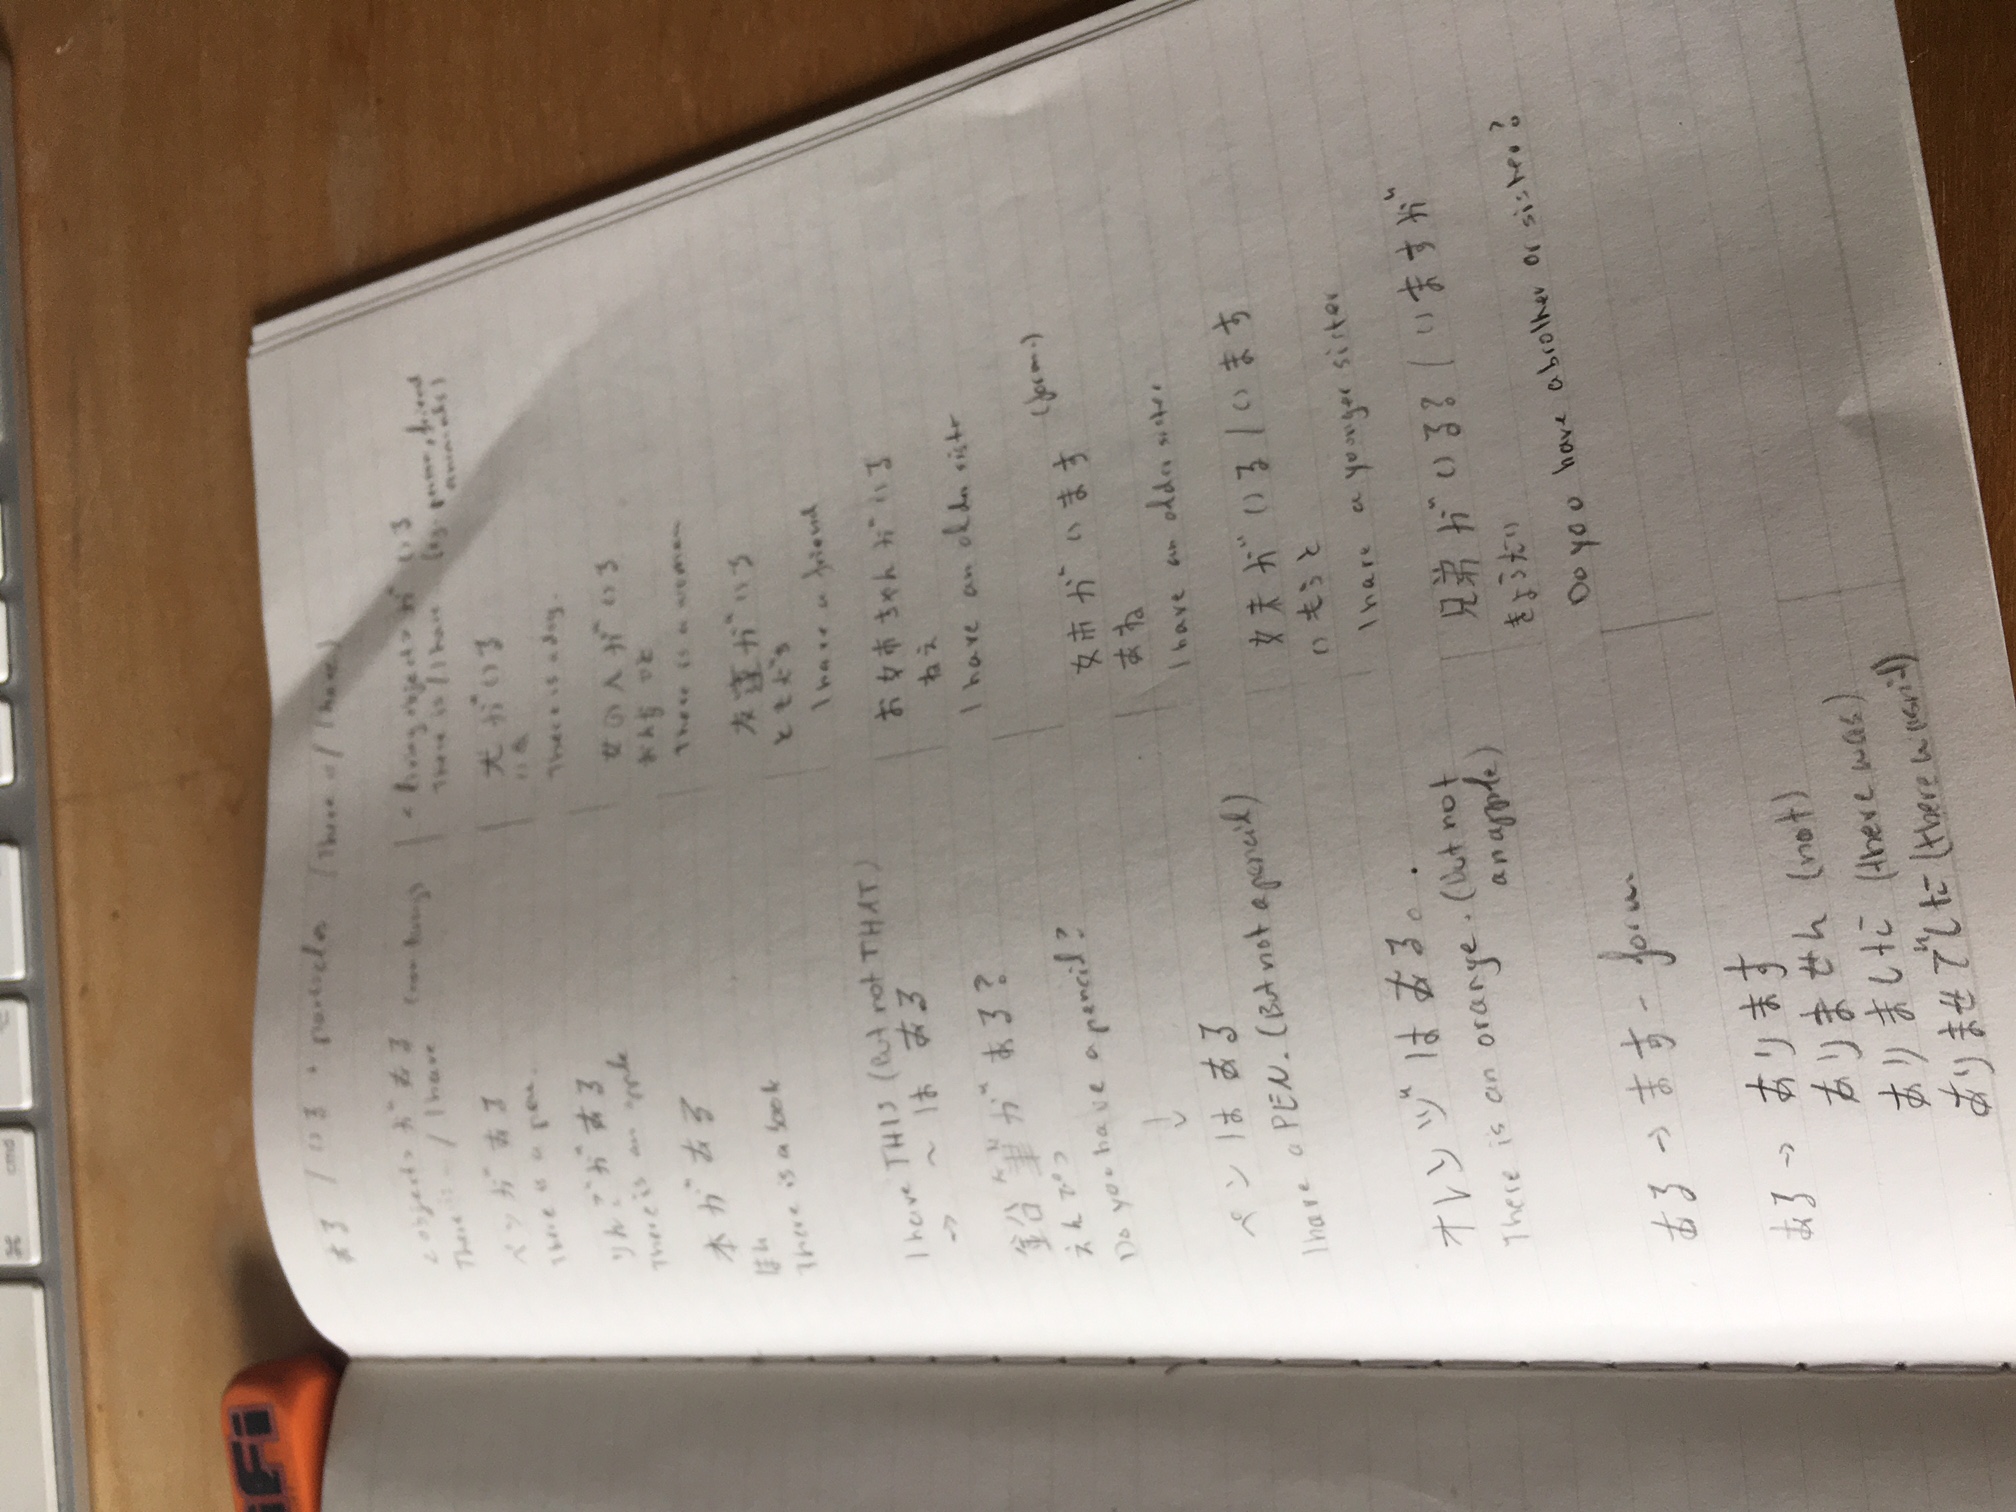 ある / いる
<object> が ある
There is / I have
ペン が ある
There is a pen.
りんご が ある
There is an apple
本 が ある
ほん
There is a book
I have THIS (But not THAT)
→ ~ は ある
鉛筆 が ある?
えんぴつ
Do you have a pencil?
↓
ペン は ある
I have a PEN. (But not a pencil)
オレンジ は ある。
There is an orange. (But not an apple)
ある → ます - form
ある → あります
ありません (not)
ありました (there was)
ありませでした (there wasn't)
<living object> が いる
There is / I have
犬 が いる
いぬ
There is a dog.
女の人 が いる
おんな ひと
There is a woman
友達 が いる
ともだち
I have a friend
お姉ちゃん が いる
ねえ
I have an older sister
姉 が います (form.)
あね
I have an older sister.
妹 が いる / います
いもうと
I have a younger sister
兄弟 が いる? / いますが
きょうだい
Do you have a brother or sister?
cmd
⌘
iFi